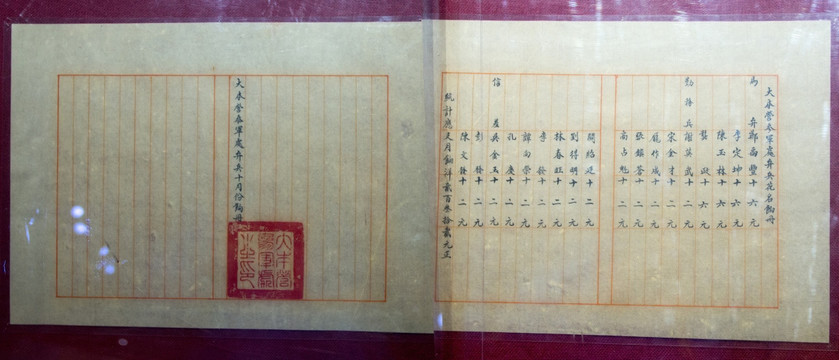 大本營參軍處弁兵花名餉冊
馬弁鄭喬豐十六元
李定坤十六元
陳玉林十六元
龔政十六元
勤務兵謝英武十二元
宋金才十二元
龍作成十二元
張鎮芬十二元
高占魁十二元
關紹廷十二元
劉得明十二元
林春旺十二元
李發十二元
譚向榮十二元
孔慶十二元
信差吳金玉十二元
彭發十二元
陳文錦十二元
統計應支月餉洋貳百叁拾貳元正
大本營參軍處弁兵十月份餉冊
大本營
參軍處